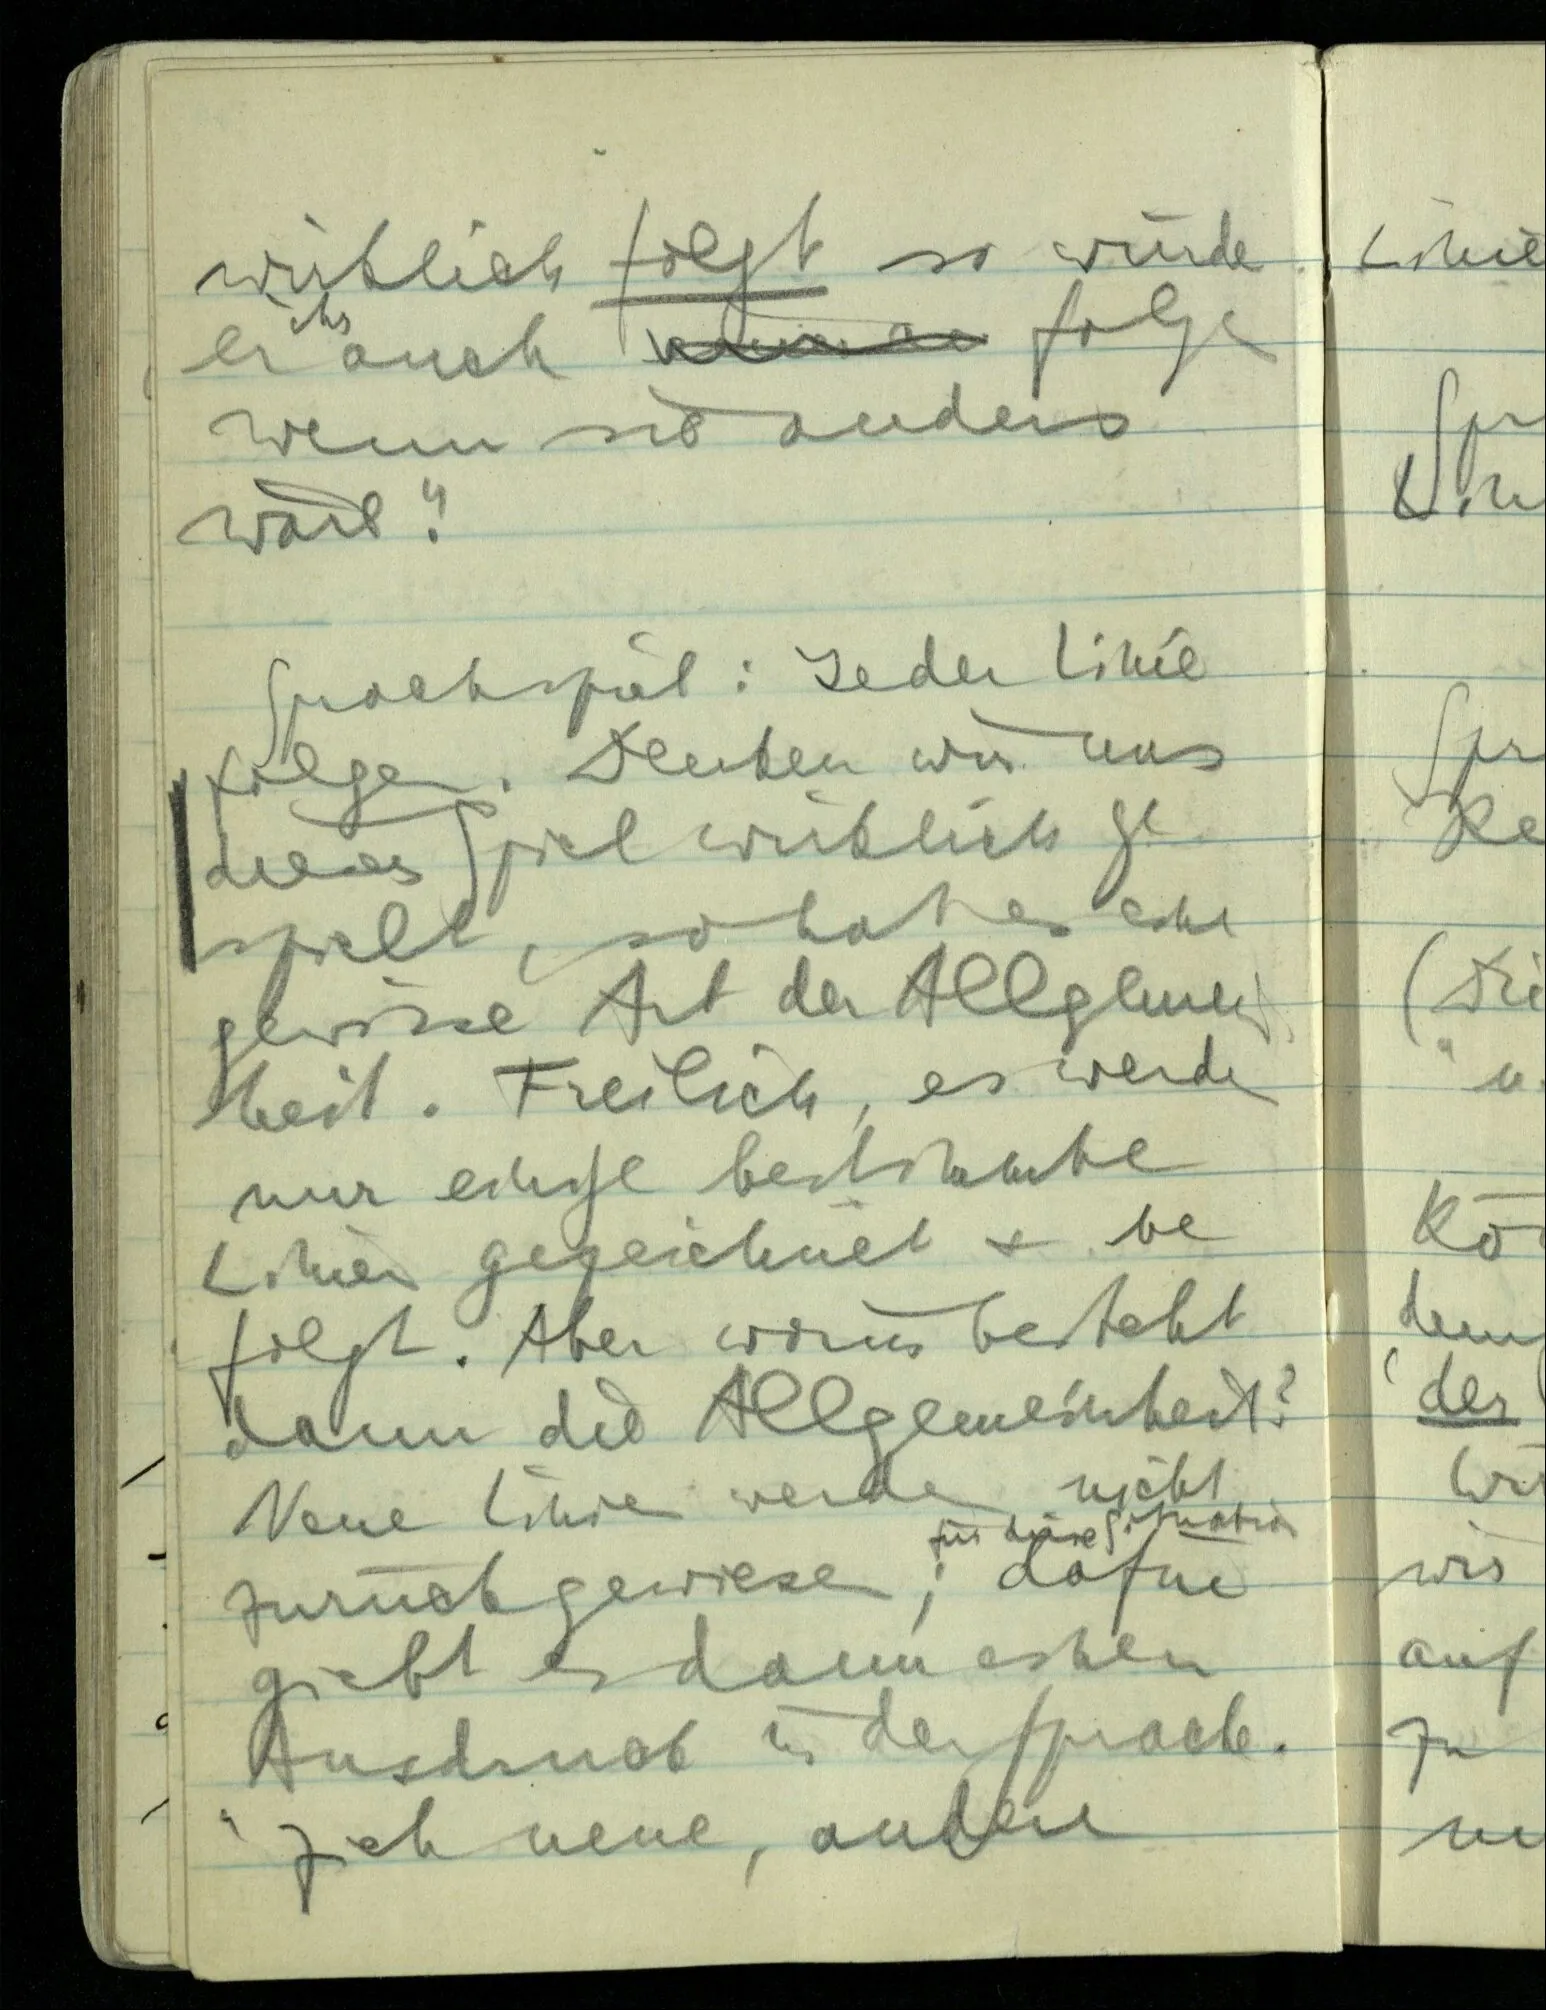 wirklich folgt so würde
er ihr auch folge
wenn sie anders
wäre".
Sprachspiel: Jeder Linie
folgen. Denken wir uns
dieses Spiel wirklich ge
spielt, so hat es eine
gewisse Art der Allgemein
heit. Freilich, es werde
nur einige bestimmte
Linien gezeichnet & be
folgt. Aber worin besteht
dann die Allgemeinheit?
Neue Linien werden nicht
für diese Situation
zurückgewiesen; dafür
giebt es dann einen
Ausdruck in der Sprache.
"Zieh neue, andere
Linie
Spr
Lin
Spr
Re
(Die
"u
Kö
dem
der
wir
auf
zu